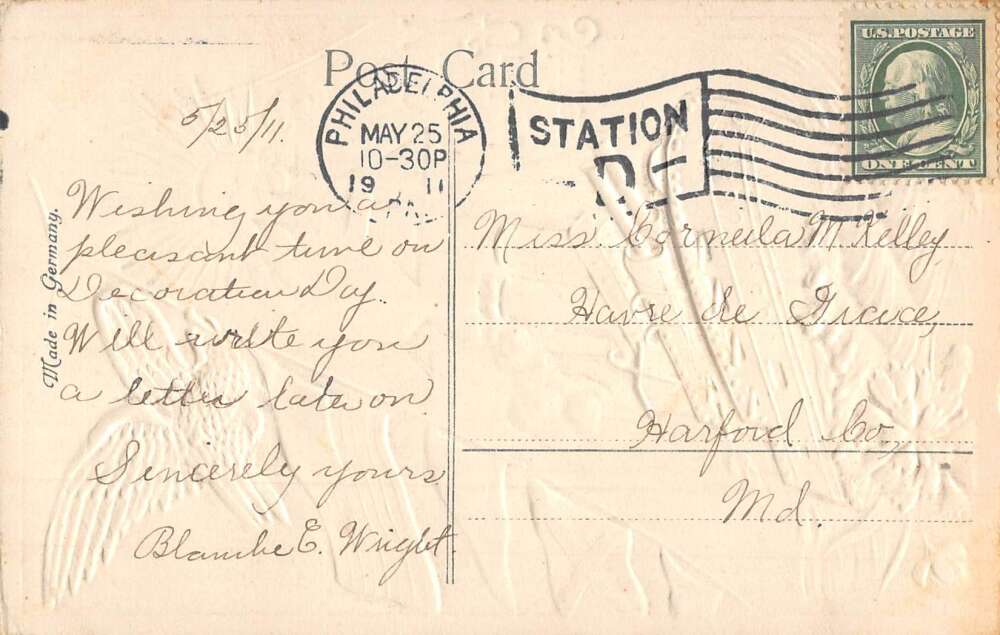 Post Card
5/25/11.
PHILADELPHIA
MAY 25
10-30P
19 11
STATION
D-
U.S. POSTAGE
ONE CENT
Made in Germany.
Wishing you a
pleasant time on
Decoration Day.
Will write you
a letter later on
Sincerely yours
Blanche E. Wright.
Miss. Corneila M Kelley
Havre de Grace,
Harford Co,
Md.